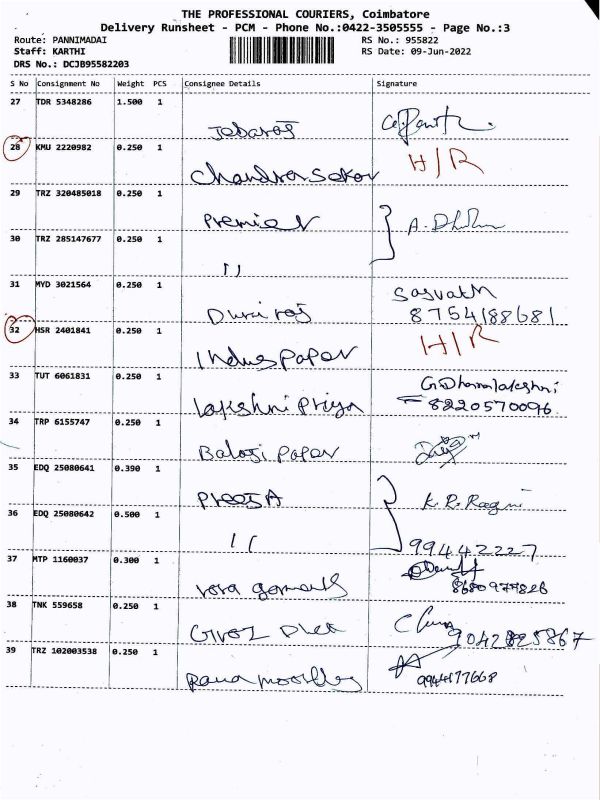 THE PROFESSIONAL COURIERS, Coimbatore
Delivery Runsheet - PCM - Phone No.:0422-3505555 - Page No.:3
Route: PANNIMADAI RS No.: 955822
Staff: KARTHI RS Date: 09-Jun-2022
DRS No.: DCJB95582203
S No Consignment No Weight PCS Consignee Details Signature
27 TDR 5348286 1.500 1
Jebaroj
28 KMU 2220982 0.250 1 H/R
Chandrasekar
29 TRZ 320485018 0.250 1
Premier
30 TRZ 285147677 0.250 1
11
31 MYD 3021564 0.250 1 Sasvath
Durai raj 8754188681
32 HSR 2401841 0.250 1 H/R
Indus paper
33 TUT 6061831 0.250 1 G Dhanalakshmi
Lakshmi Priya 8220570096
34 TRP 6155747 0.250 1
Balaji Paper
35 EDQ 25080641 0.390 1
PreejA K. R. Ragni
36 EDQ 25080642 0.500 1
11 99442227
37 MTP 1160037 0.300 1
8680977826
38 TNK 559658 0.250 1
9042825867
39 TRZ 102003538 0.250 1
Rama moorthy 9944177668